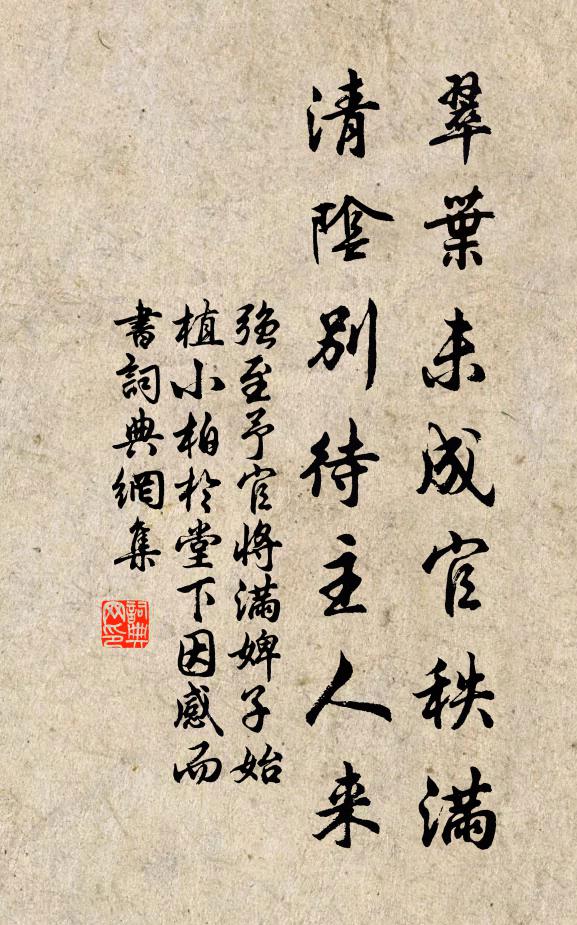 翠葉未成官秩滿
清陰別待主人来
强至予官將滿婢子始
植小柏於堂下因感而
書詞典網集
詞典网印